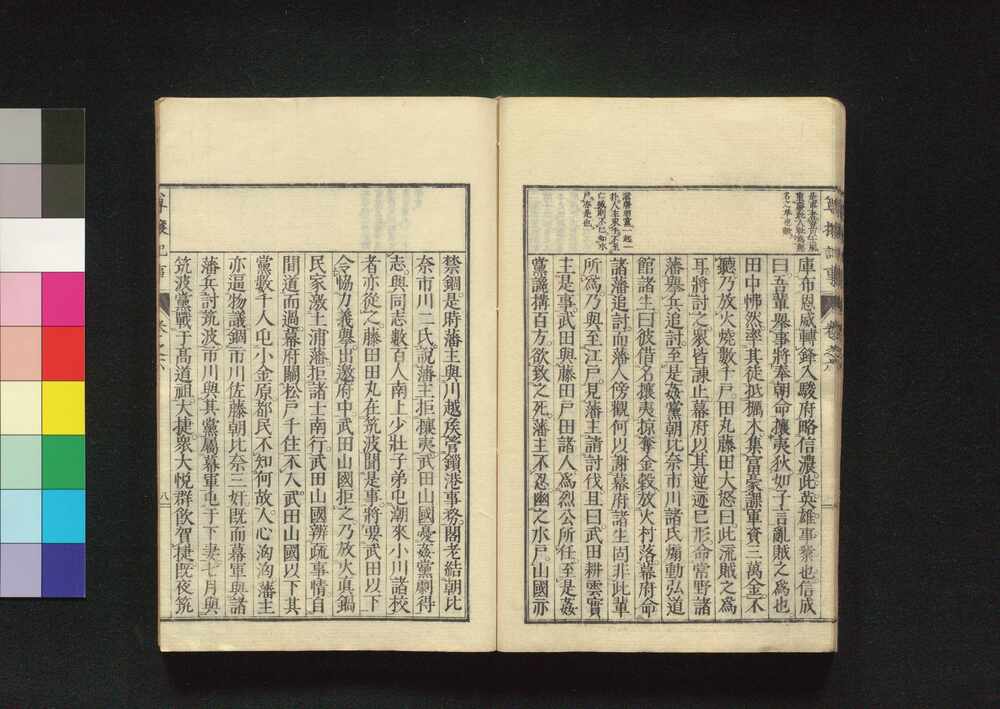 庫布恩威轉鋒入駿府略信濃此英雄事業也信成
曰吾輩舉事將奉朝命攘夷狄如子言亂賊之爲也
田中怫然率其徒抵橡木集富豪課軍資三萬金不
聽乃放火燒數千戸田丸藤田大怒曰此流賊之爲
耳將討之衆皆諫止幕府以其逆迹已形命常野諸
藩擧兵追討至是姦黨朝比奈市川諸氏煽動弘道
館諸生曰彼借名攘夷掠奪金穀放火村落幕府命
諸藩追討而藩人傍觀何以謝幕府諸生固非此輩
所爲乃與至江戸見藩主請討伐且曰武田耕雲實
主是事武田與藤田戸田諸人爲烈公所任至是姦
黨讒搆百方欲致之死藩主不忍幽之水戸山國亦
禁錮是時藩主與川越矦管鎖港事務閣老結朝比
奈市川二氏説藩主拒攘夷武田山國憂姦黨剏得
志與同志數百人南上少壯子弟屯潮來小川諸校
者亦從之藤田田丸在筑波聞是事將要武田以下
令協力義擧出邀府中武田山國拒之乃放火眞鍋
民家激土浦藩拒諸士南行武田山國辨疏事情自
間道而過幕府關松戸千住不入武田山國以下其
黨數千人屯小金原都民不知何故人心洶洶藩主
亦逼物議錮市川佐藤朝比奈三奸既而幕軍與諸
藩兵討筑波市川與其黨屬幕軍屯于下妻七月與
筑波黨戰于髙道祖大捷衆大悦群飲賀捷既夜筑